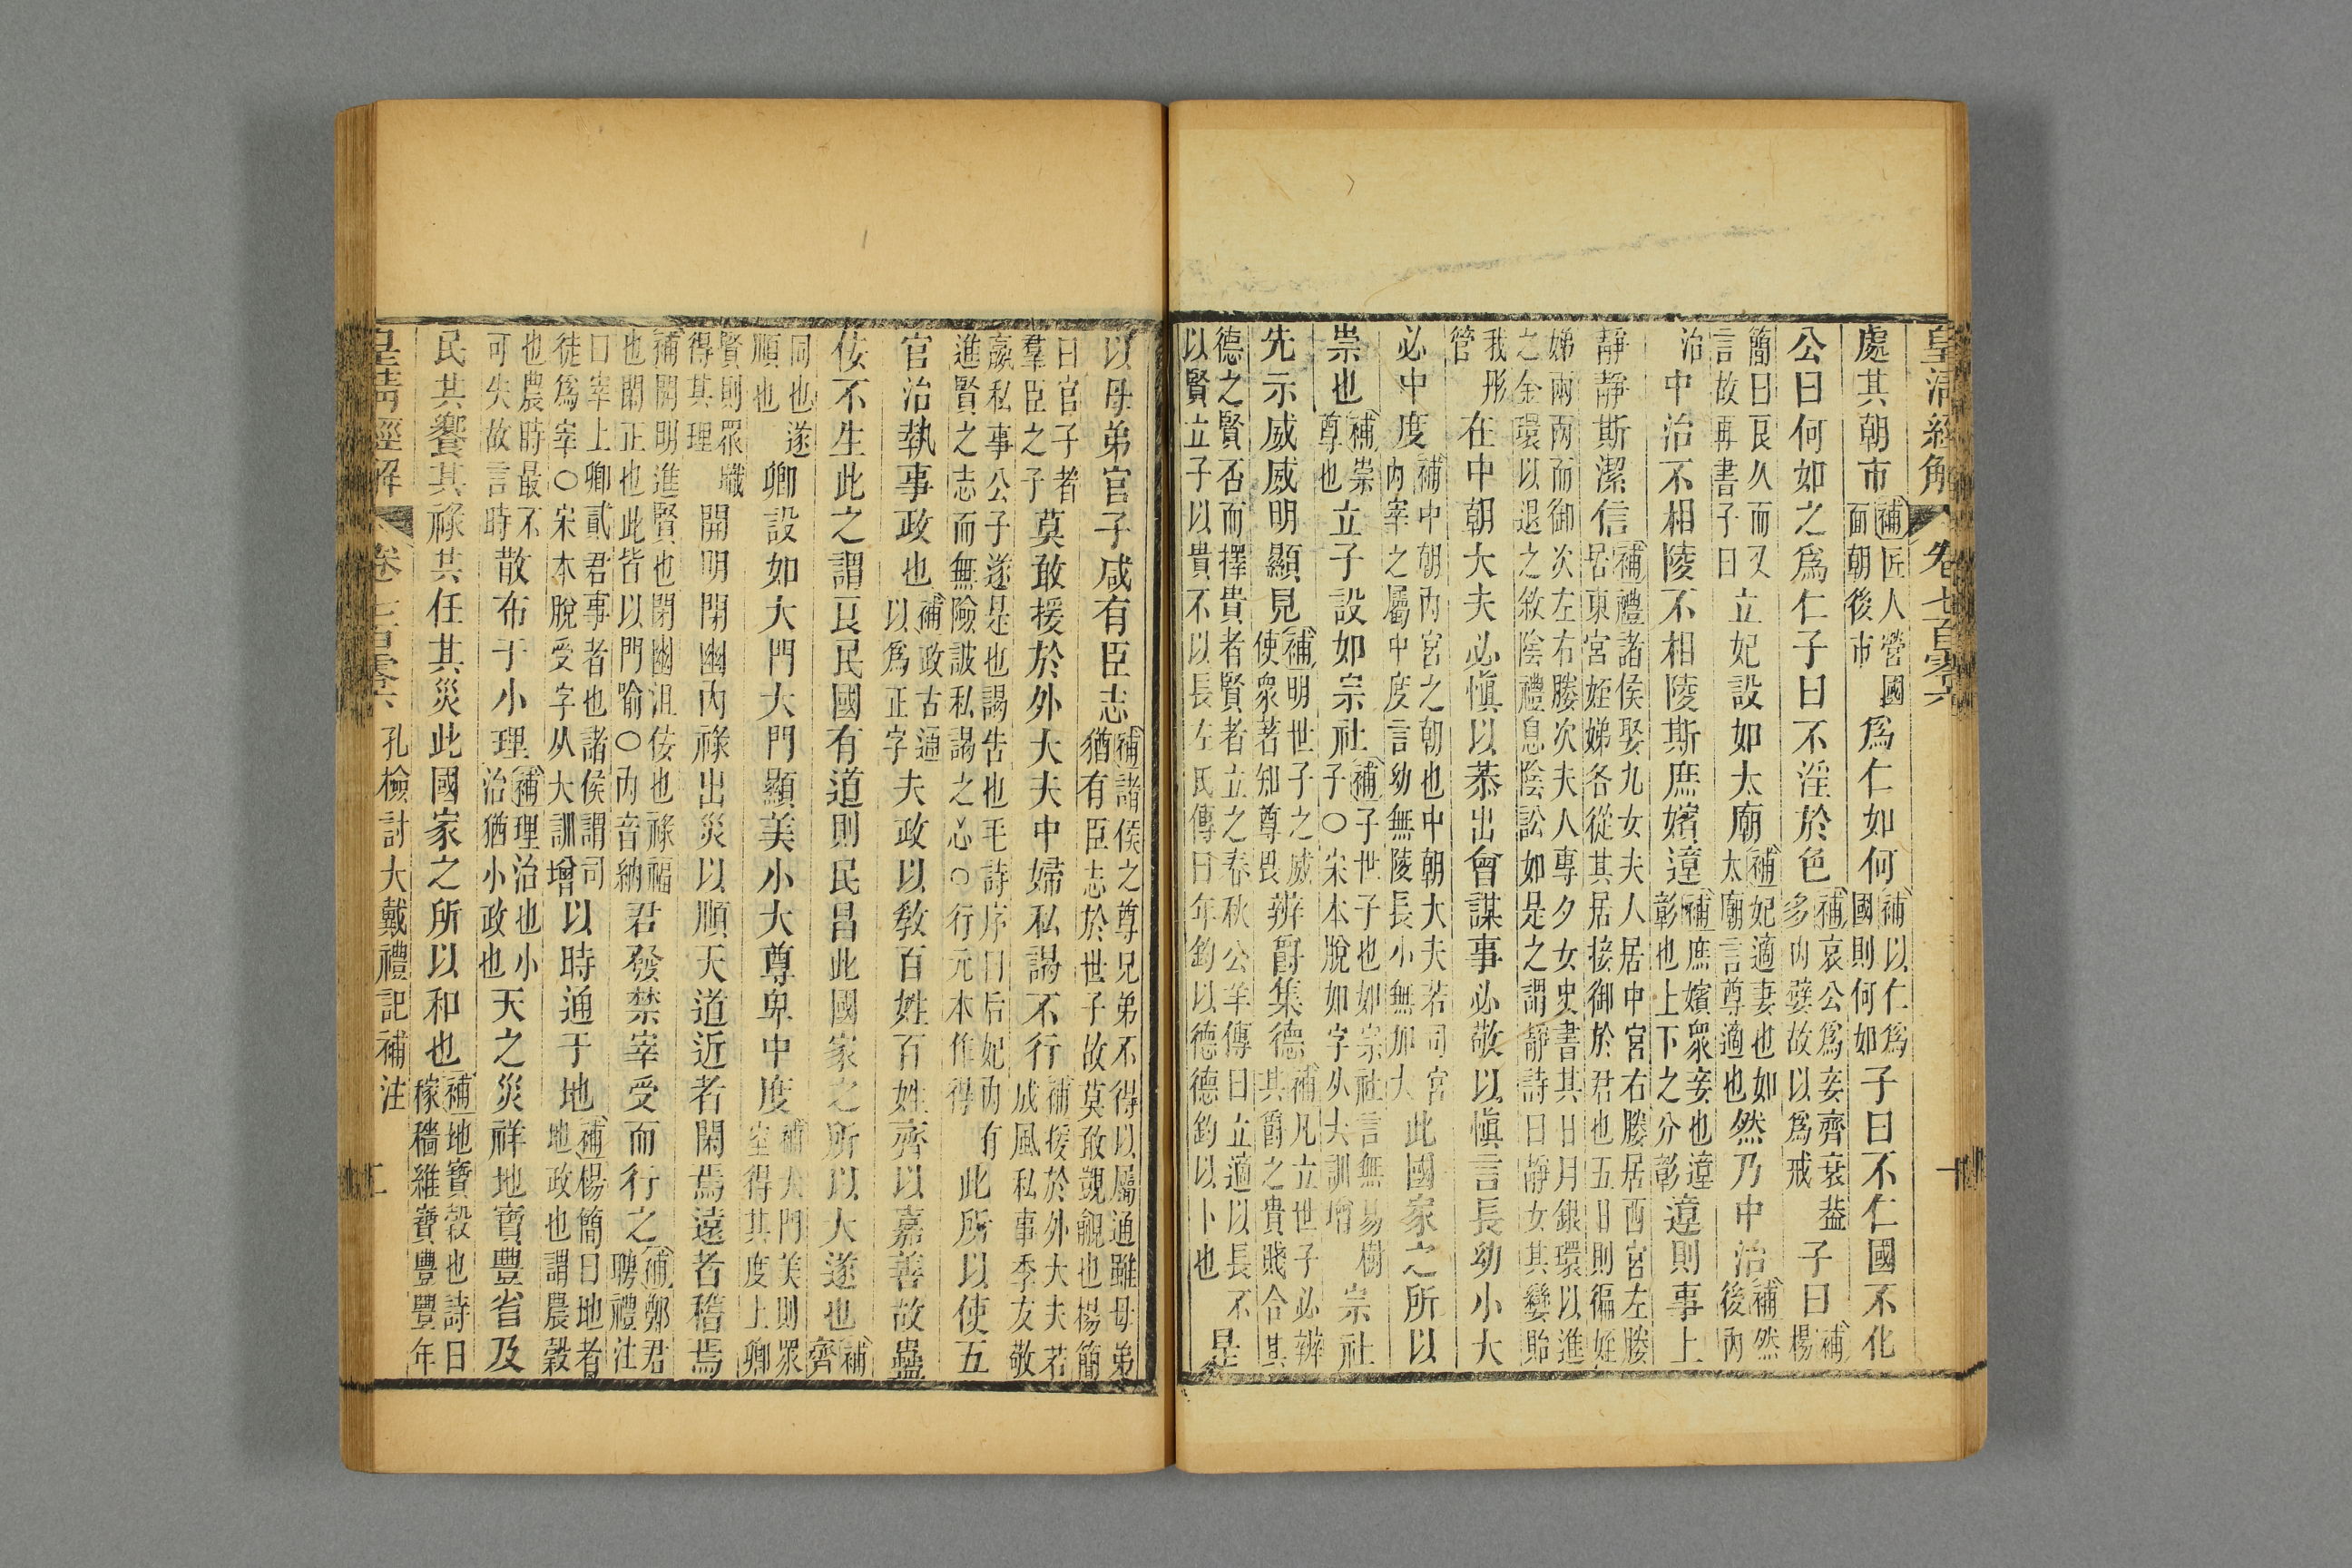 皇清經解 卷七百零六 十
處其朝市補匠人營國面朝後市爲仁如何補以仁爲國則何如子曰不仁國不化
公曰何如之爲仁子曰不淫於色補哀公爲妾齊衰葢多內嬖故以爲戒子曰補楊
簡曰良久而又言故再書子曰立妃設如太廟補妃適妻也如太廟言尊適也然乃中治補然後內
治中治不相陵不相陵斯庶嬪遧補庶嬪衆妾也遧彰也上下之分彰遧則事上
靜靜斯潔信補禮諸侯娶九女夫人居中宮右媵居西宮左媵居東宮姪娣各從其居接御於君也五日則徧姪
娣兩兩而御次左右媵次夫人專夕女史書其日月銀環以進之金環以退之敘陰禮息陰訟如是之謂靜詩曰靜女其孌貽
我彤管在中朝大夫必愼以恭出會謀事必敬以愼言長幼小大
必中度補中朝內宮之朝也中朝大夫若司宮內宰之屬中度言幼無陵長小無加大此國家之所以
崇也補崇尊也立子設如宗社補子世子也如宗社言無易樹子○宋本脫如字从大訓增宗社
先示威威明顯見補明世子之威使衆著知尊畏辨爵集德補凡立世子必辨其爵之貴賤合其
德之賢否而擇貴者賢者立之春秋公羊傳曰立適以長不以賢立子以貴不以長左氏傳曰年鈞以德德鈞以卜也是
以母弟官子咸有臣志補諸侯之尊兄弟不得以屬通雖母弟猶有臣志於世子故莫敢覬覦也楊簡
曰官子者羣臣之子莫敢援於外大夫中婦私謁不行補援於外大夫若成風私事季友敬
嬴私事公子遂是也謁告也毛詩序曰后妃內有進賢之志而無險詖私謁之心○行元本作得此所以使五
官治執事政也補政古通以爲正字夫政以敎百姓百姓齊以嘉善故蠱
佞不生此之謂良民國有道則民昌此國家之所以大遂也補齊
同也遂順也卿設如大門大門顯美小大尊卑中度補大門美則衆室得其度上卿
賢則眾職得其理開明閉幽內祿出災以順天道近者閑焉遠者稽焉
補開明進賢也閉幽沮佞也祿福也閑正也此皆以門喻○內音納君發禁宰受而行之補鄭君聘禮注
曰宰上卿貳君事者也諸侯謂司徒爲宰○宋本脫受字从大訓增以時通于地補楊簡曰地者地政也謂農穀
也農時最不可失故言時散布于小理補理治也小治猶小政也天之災祥地寶豐省及
民共饗其祿共任其災此國家之所以和也補地寶穀也詩曰稼穡維寶豐豐年
皇清經解 卷七百零六 孔檢討大戴禮記補注